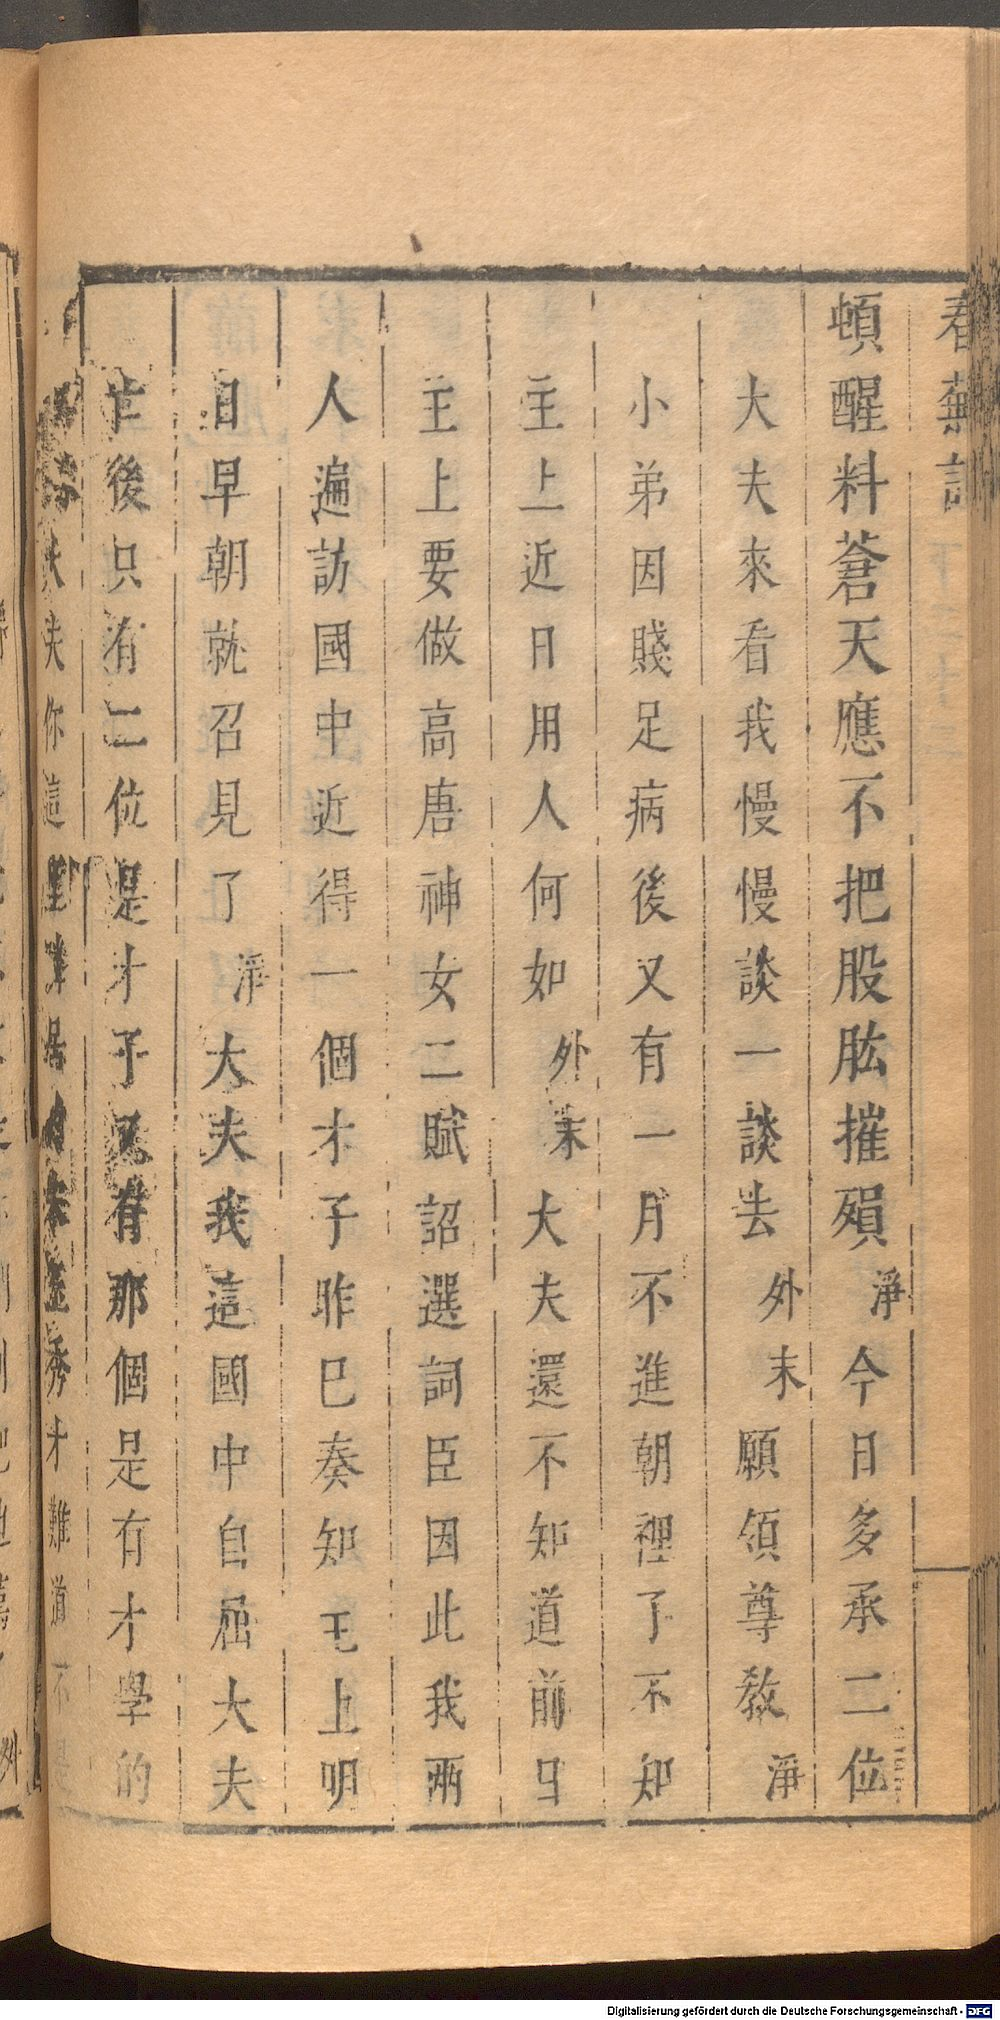 春蕪記
頓醒料蒼天應不把股肱摧殞 淨 今日多承二位
大夫來看我慢慢談一談去 外末 願領尊教 淨
小弟因賤足病後又有一月不進朝裡了不知
主上近日用人何如 外末 大夫還不知道前日
主上要做高唐神女二賦詔選詞臣因此我兩
人遍訪國中近得一個才子昨已奏知主上明
日早朝就召見了 淨 大夫我這國中自屈大夫
亡後只有二位是才子又有那個是有才學的
大夫你這里 秀才難道不是
Digitalisierung gefördert durch die Deutsche Forschungsgemeinschaft - DFG